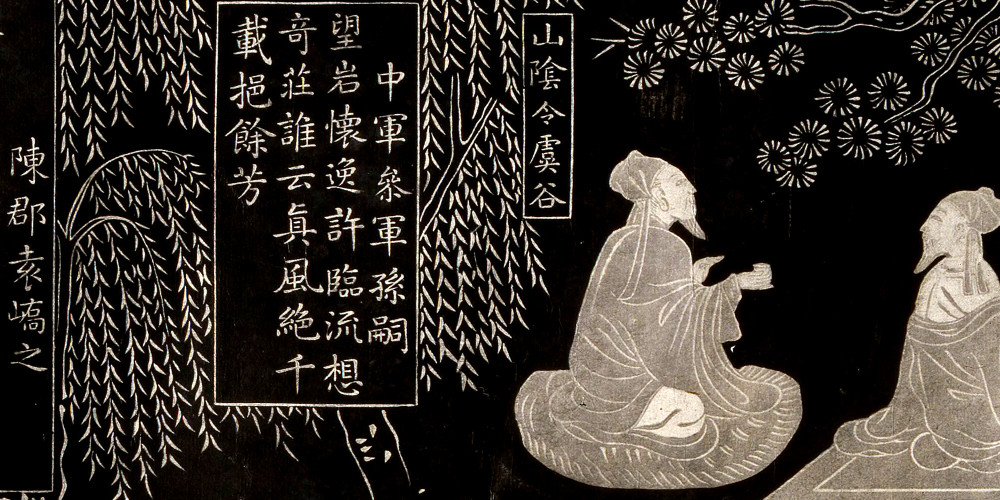 山陰令虞谷
中軍叅軍孫嗣
望岩懷逸許臨流想
奇莊誰云真風絕千
載挹餘芳
陳郡袁嶠之